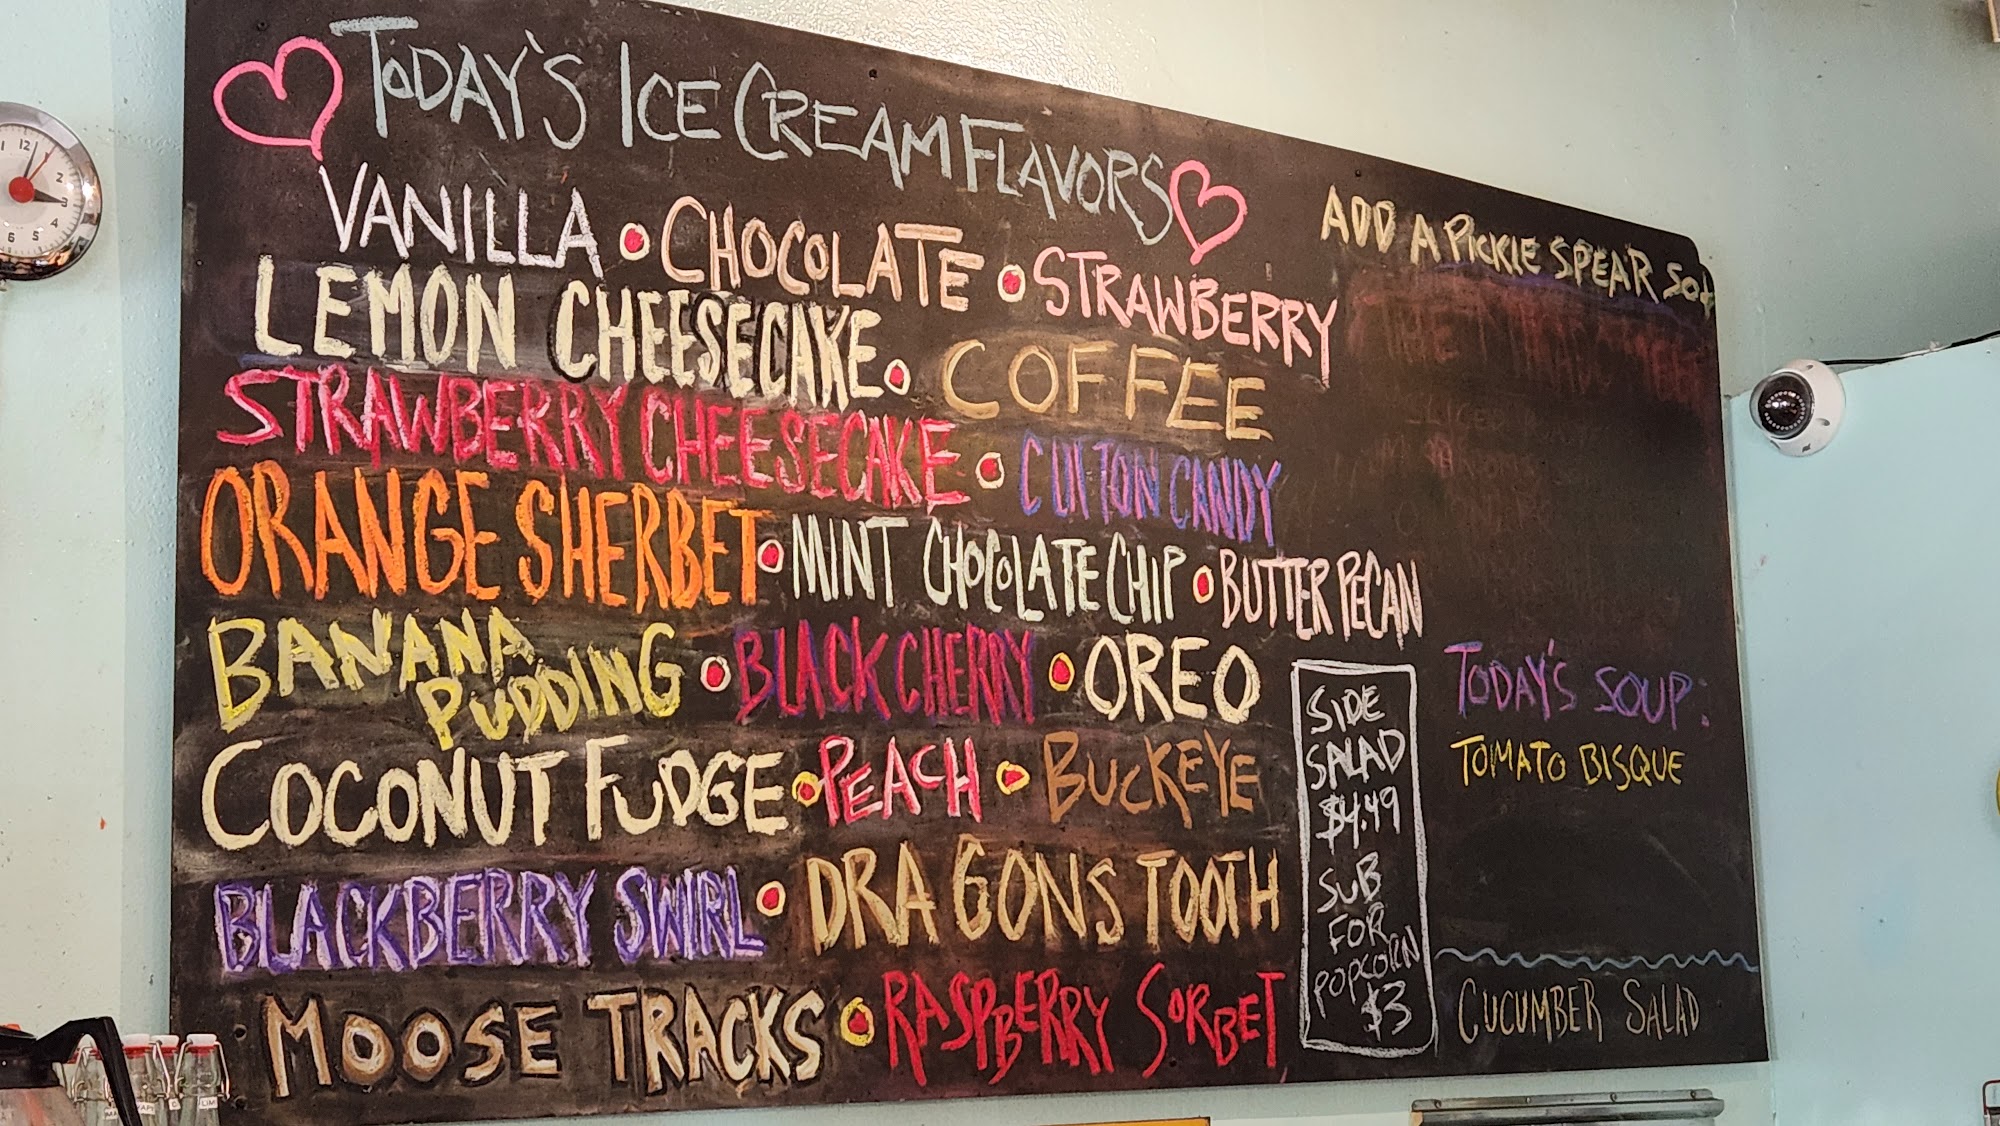 TODAY'S ICE CREAM FLAVORS
VANILLA • CHOCOLATE • STRAWBERRY
LEMON CHEESECAKE • COFFEE
STRAWBERRY CHEESECAKE • COTTON CANDY
ORANGE SHERBET • MINT CHOCOLATE CHIP • BUTTER PECAN
BANANA PUDDING • BLACK CHERRY • OREO
COCONUT FUDGE • PEACH • BUCKEYE
BLACKBERRY SWIRL • DRAGONS TOOTH
MOOSE TRACKS • RASPBERRY SORBET
SIDE
SALAD
$4.49
SUB
FOR
POPCORN
$3
ADD A PICKLE SPEAR 50¢
TODAY'S SOUP:
TOMATO BISQUE
CUCUMBER SALAD
12
1
2
3
4
5
6